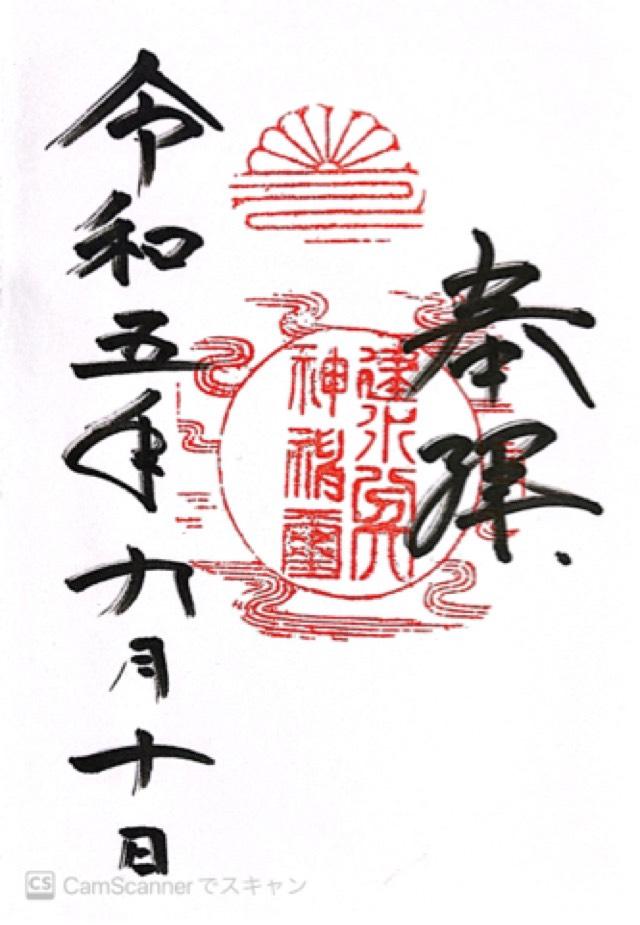 奉拝
建水分
神
令和五年九月十日
CS CamScannerでスキャン